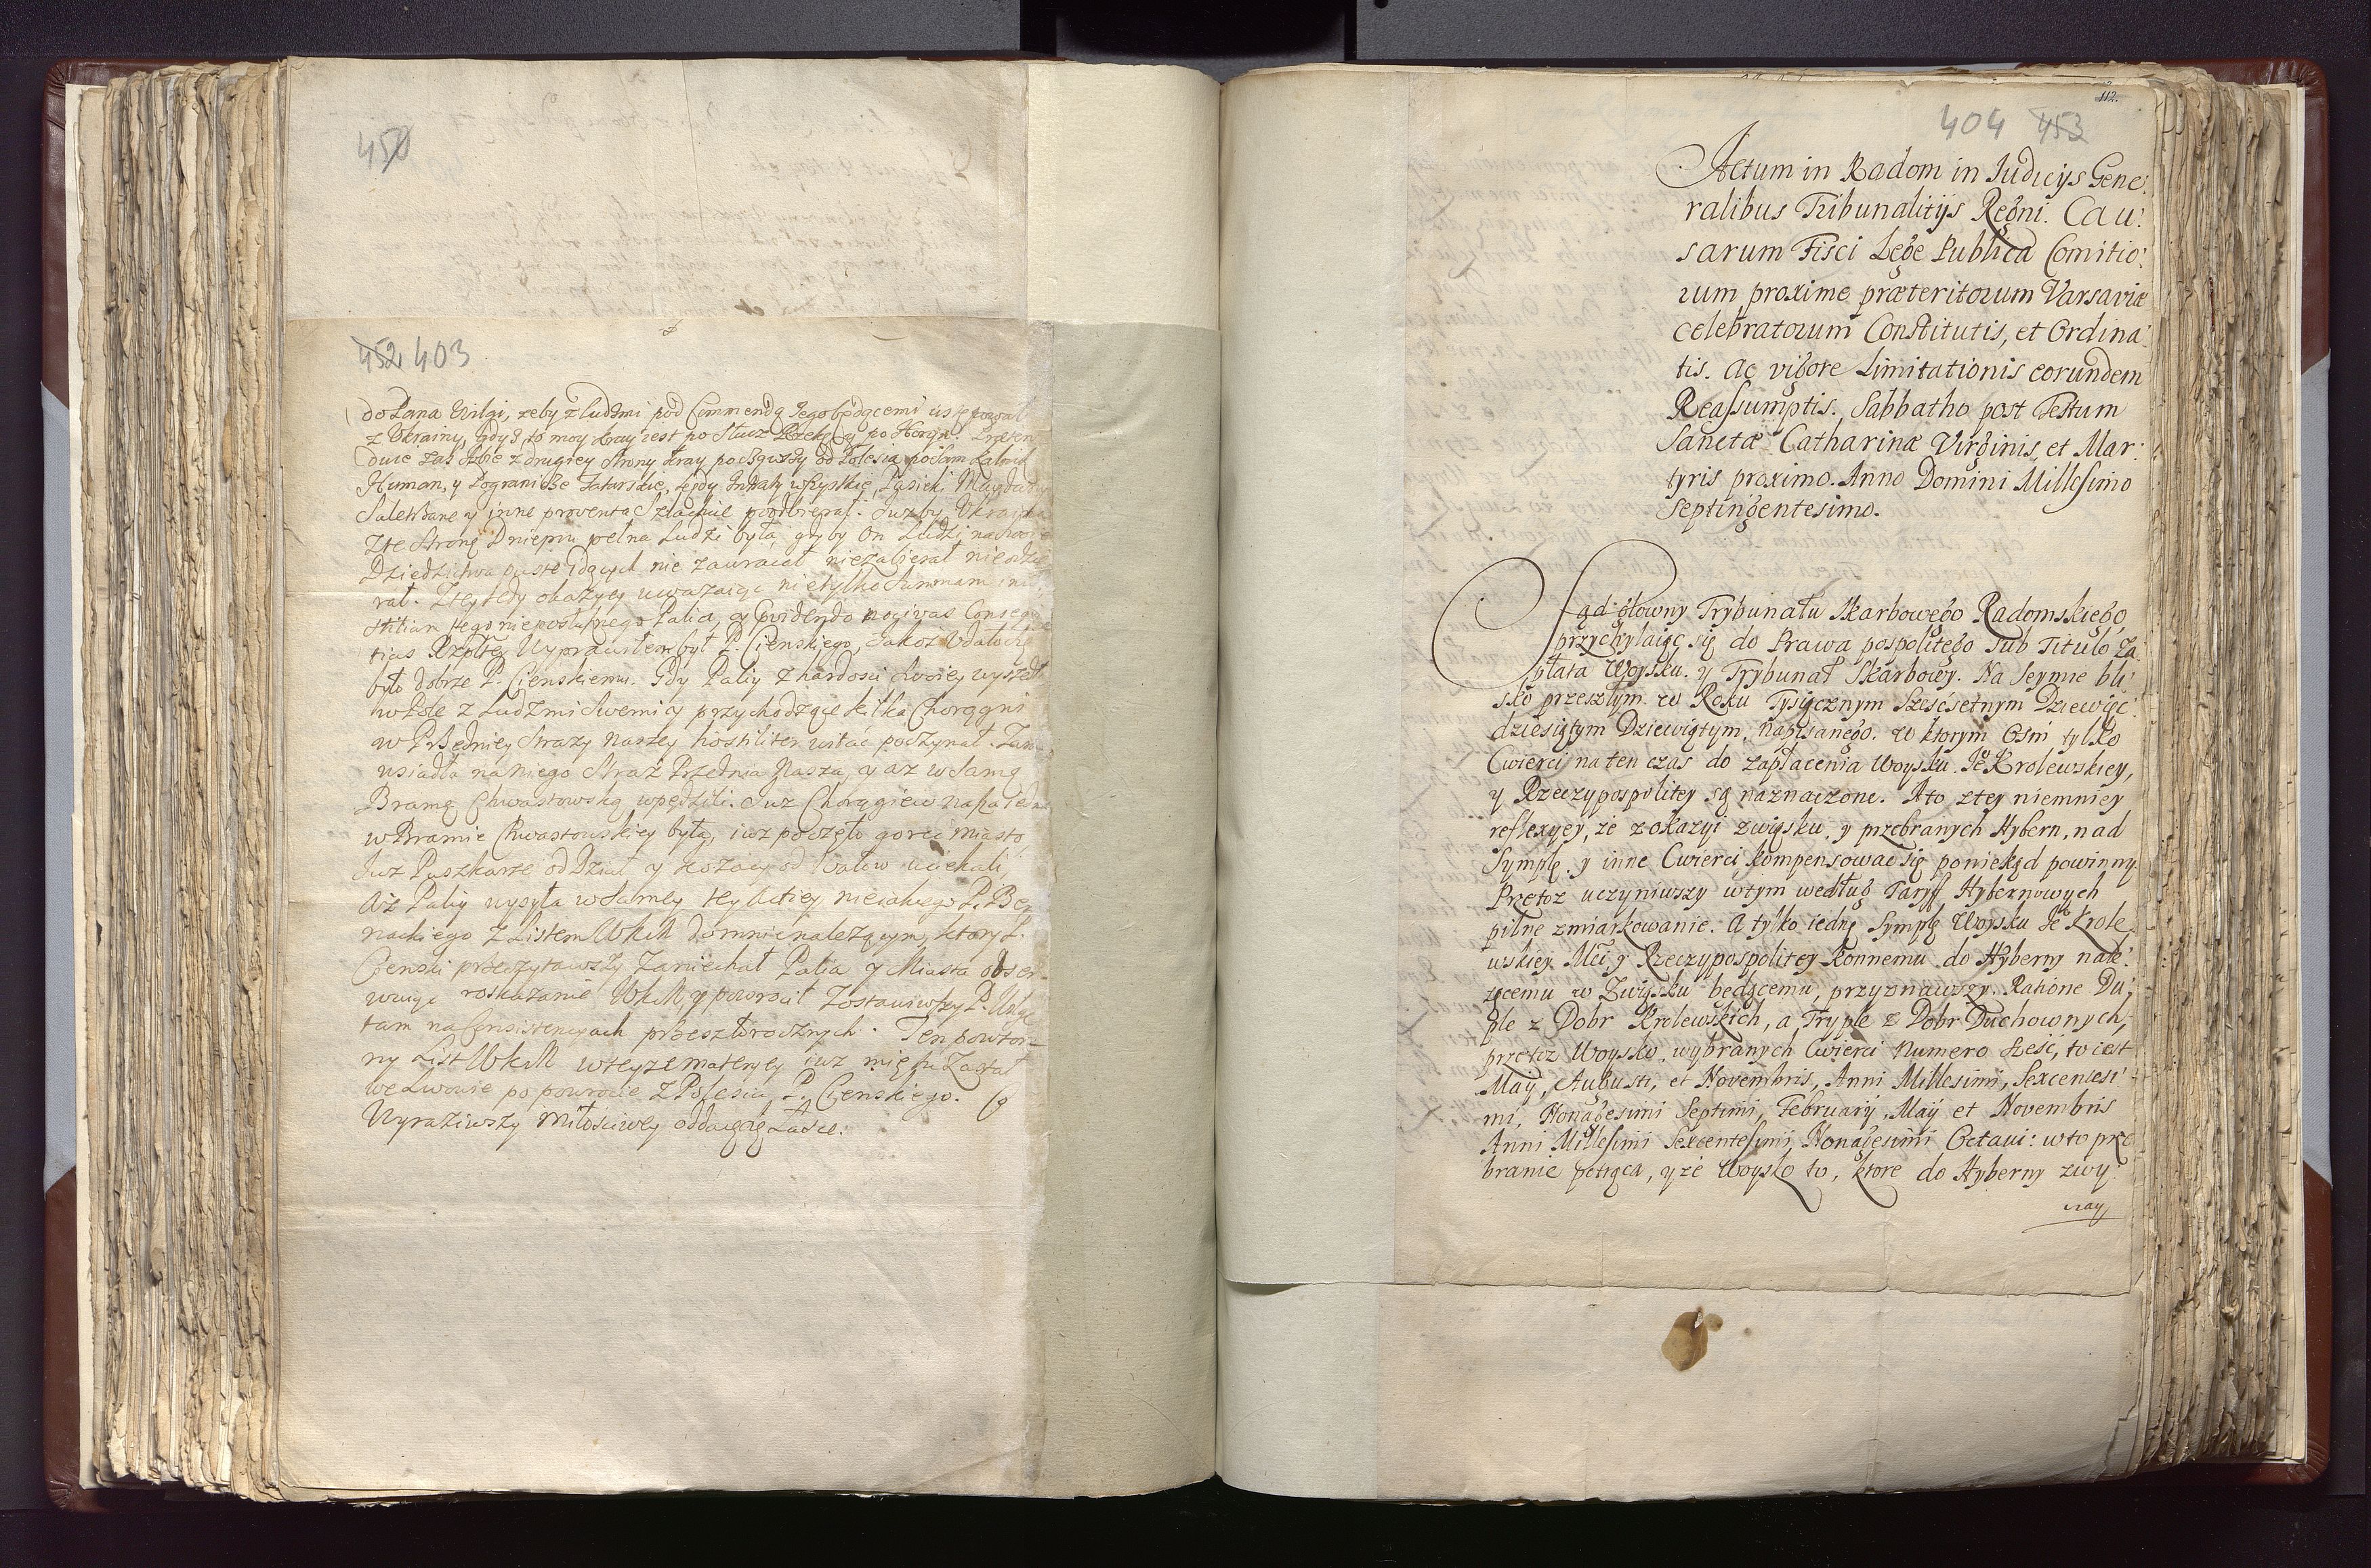 450
452 403
do Pana Wilgi, zeby z ludzmi pod Commendą Iego będącemi ustępował
z Ukrainy, gdyż to moy kray iest po Słucz Rzekę y po Horyn. Præten
duie zas sobie z drugiey strony kray począwszy od Polesia
Human, y Pogranicze Tatarskie, tedy wszystkie, Pasieki
Saletrzane y inne proventa Szlachcie poodbierał. Iuzby Ukraina
z te stronę Dniepru pełna Ludzi była, gdyby on Ludzi na swoie
Dziedzictwa puste idących nie zawracał niezabierał
rał. z tey tedy okazyey uwazaiąc nietylko
tego nieposłusznego Palia, y providendo nocivas Conseque
tias Rzpltey Wyprawiłem był P. Cienskiego, Iakoz Udało się
było dobrze P. Cienskiemu. Gdy Paliy z hardosci swoiey wyszedł
w Pole z Ludzmi swemi y przychodzące kilka Chorągni
w Przedniey Strazy naszey hostiliter witać poczynał.
usiadła na niego Straż Przednia Nasza, y az w samą
Bramę Chwastowską wpędzili. Iuz Chorągiew nasza iedna
w Bramie Chwastowskiey była, iuz poczęło goreć miasto,
Iuz Puszkarze od Dział y Kozacy od Wałow uciekali,
Aż Paliy wysyła w samey tey Actiey nieiakiego P. Ber
nackiego z Listem WKM do mnie nalezącym, ktory P.
Cienski przeczytawszy zaniechał Palia y Miasta obser
wuiąc roskazanie WKM y powrocił zostawiwszy P. Wilgę
tam na Consistencyach przeszłorocznych. Ten powtor
ny List WKM w teyze materyey iuz mię tu zastał
we Lwowie po powrocie z Polesia, P. Cienskiego.
Wyraziwszy Miłosciwey oddaię się Łasce.
112.
404 453
Actum in Radom in Iudicijs Gene:
ralibus Tribunalitijs Regni. Cau:
sarum Fisci Lege Publica Comitio:
rum proxime præteritorum Varsaviæ
celebratorum Constitutis, et Ordina:
tis. Ac vigore Limitationis eorundem
Reassumptis. Sabbatho post Festum
Sanctæ Catharinæ Virginis et Mar:
tyris proximo. Anno Domini Millesimo
Septingentesimo.
Sąd głowny Trybunału Skarbowego Radomskiego,
przychylaiąc się do Prawa pospolitego Sub Titulo Za
płata Woysku. y Trybunał Skarbowy. Na Seymie bli:
sko przeszłym. w Roku Tysiącznym Sześćsetnym Dziewięć:
dziesiątym Dziewiątym, napisanego. w ktorym Osm tylko
Cwierci na ten czas do zapłacenia Woysku. Je Krolewskiey,
y Rzeczypospolitey są naznaczone. A to z tey niemniey
reflexyey, że z okazyi związku, y przebranych Hybern, nad
Symplę, y inne Cwierci kompensować się poniekąd powinny.
Przetoz uczyniwszy wtym według Taryff Hybernowych
pilne zmiarkowanie. A tylko iednę Symplę Woysku Je Krole
wskiey Mci y Rzeczypospolitey Konnemu do Hyberny nale:
zącemu w Związku będącemu, przyznawszy. Ratione Du:
ple z Dobr Krolewskich, a Tryple z Dobr Duchownych,
przetoz Woysko, wybranych Cwierci Numero sześć, to iest
Maij, Augusti, et Novembris, Anni Millesimi, Sexcentesi:
mi, Nonagesimi Septimi, Februarij, Maij et Novembris
Anni Millesimi Sexcentesimi, Nonagesimi Octavi: w to prze
branie potrąca, y że Woysko to, ktore do Hyberny zwy
czay